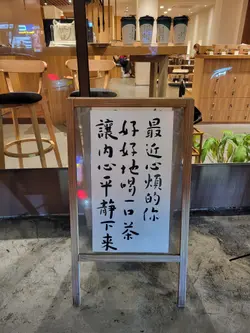 最近心煩的你
好好地喝一口茶
讓內心平靜下來